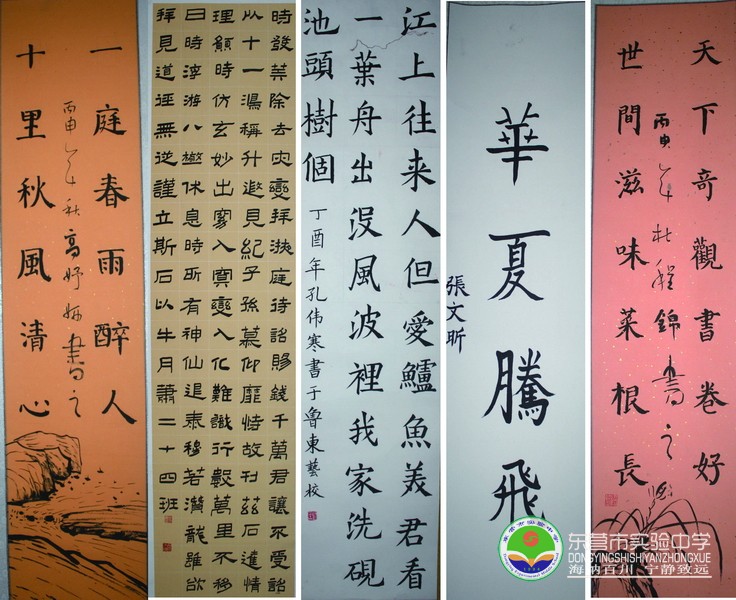 一庭春雨醉人
十里秋風清心
丙申年秋高妤書之
時發禁除去灾變拜挾庭待詔賜錢千萬君讓不受詔
以十一鴻稱升遐見紀子孫慕仰靡恃故刊茲石達情
理願時仿玄妙出窈入冥變入化難識行數萬里不移
日時淳游八極休息時所有神仙退泰穆若潛龍雖欲
拜見道徑無從謹立斯石以牛月蕭二十四班
江上往来人但愛鱸魚美君看
一葉舟出没風波裡我家洗硯
池頭樹個
丁酉年孔伟寒書于魯東藝校
華夏騰飛
張文昕
天下奇觀書卷好
世間滋味菜根長
丙申年杜程錦書之
东营市实验中学
DONGYINGSHISHIYANZHONGXUE
海纳百川 宁静致远